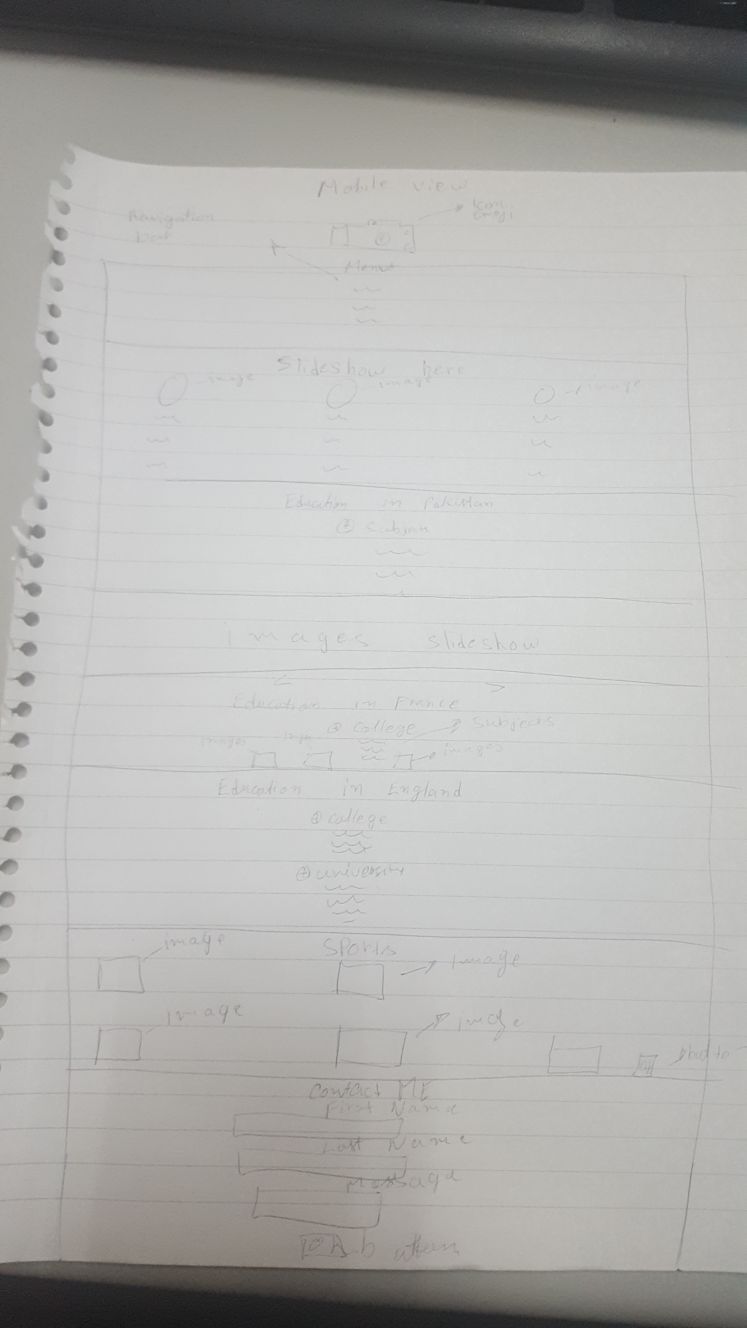 Mobile view
Navigation
Icon
Menu
Slideshow here
image image image
Education in Pakistan
images slideshow
Education in France
@ College → Subjects
images images
Education in England
@ college
@ university
Sports
image image
image image
Contact ME
First Name
Last Name
Message